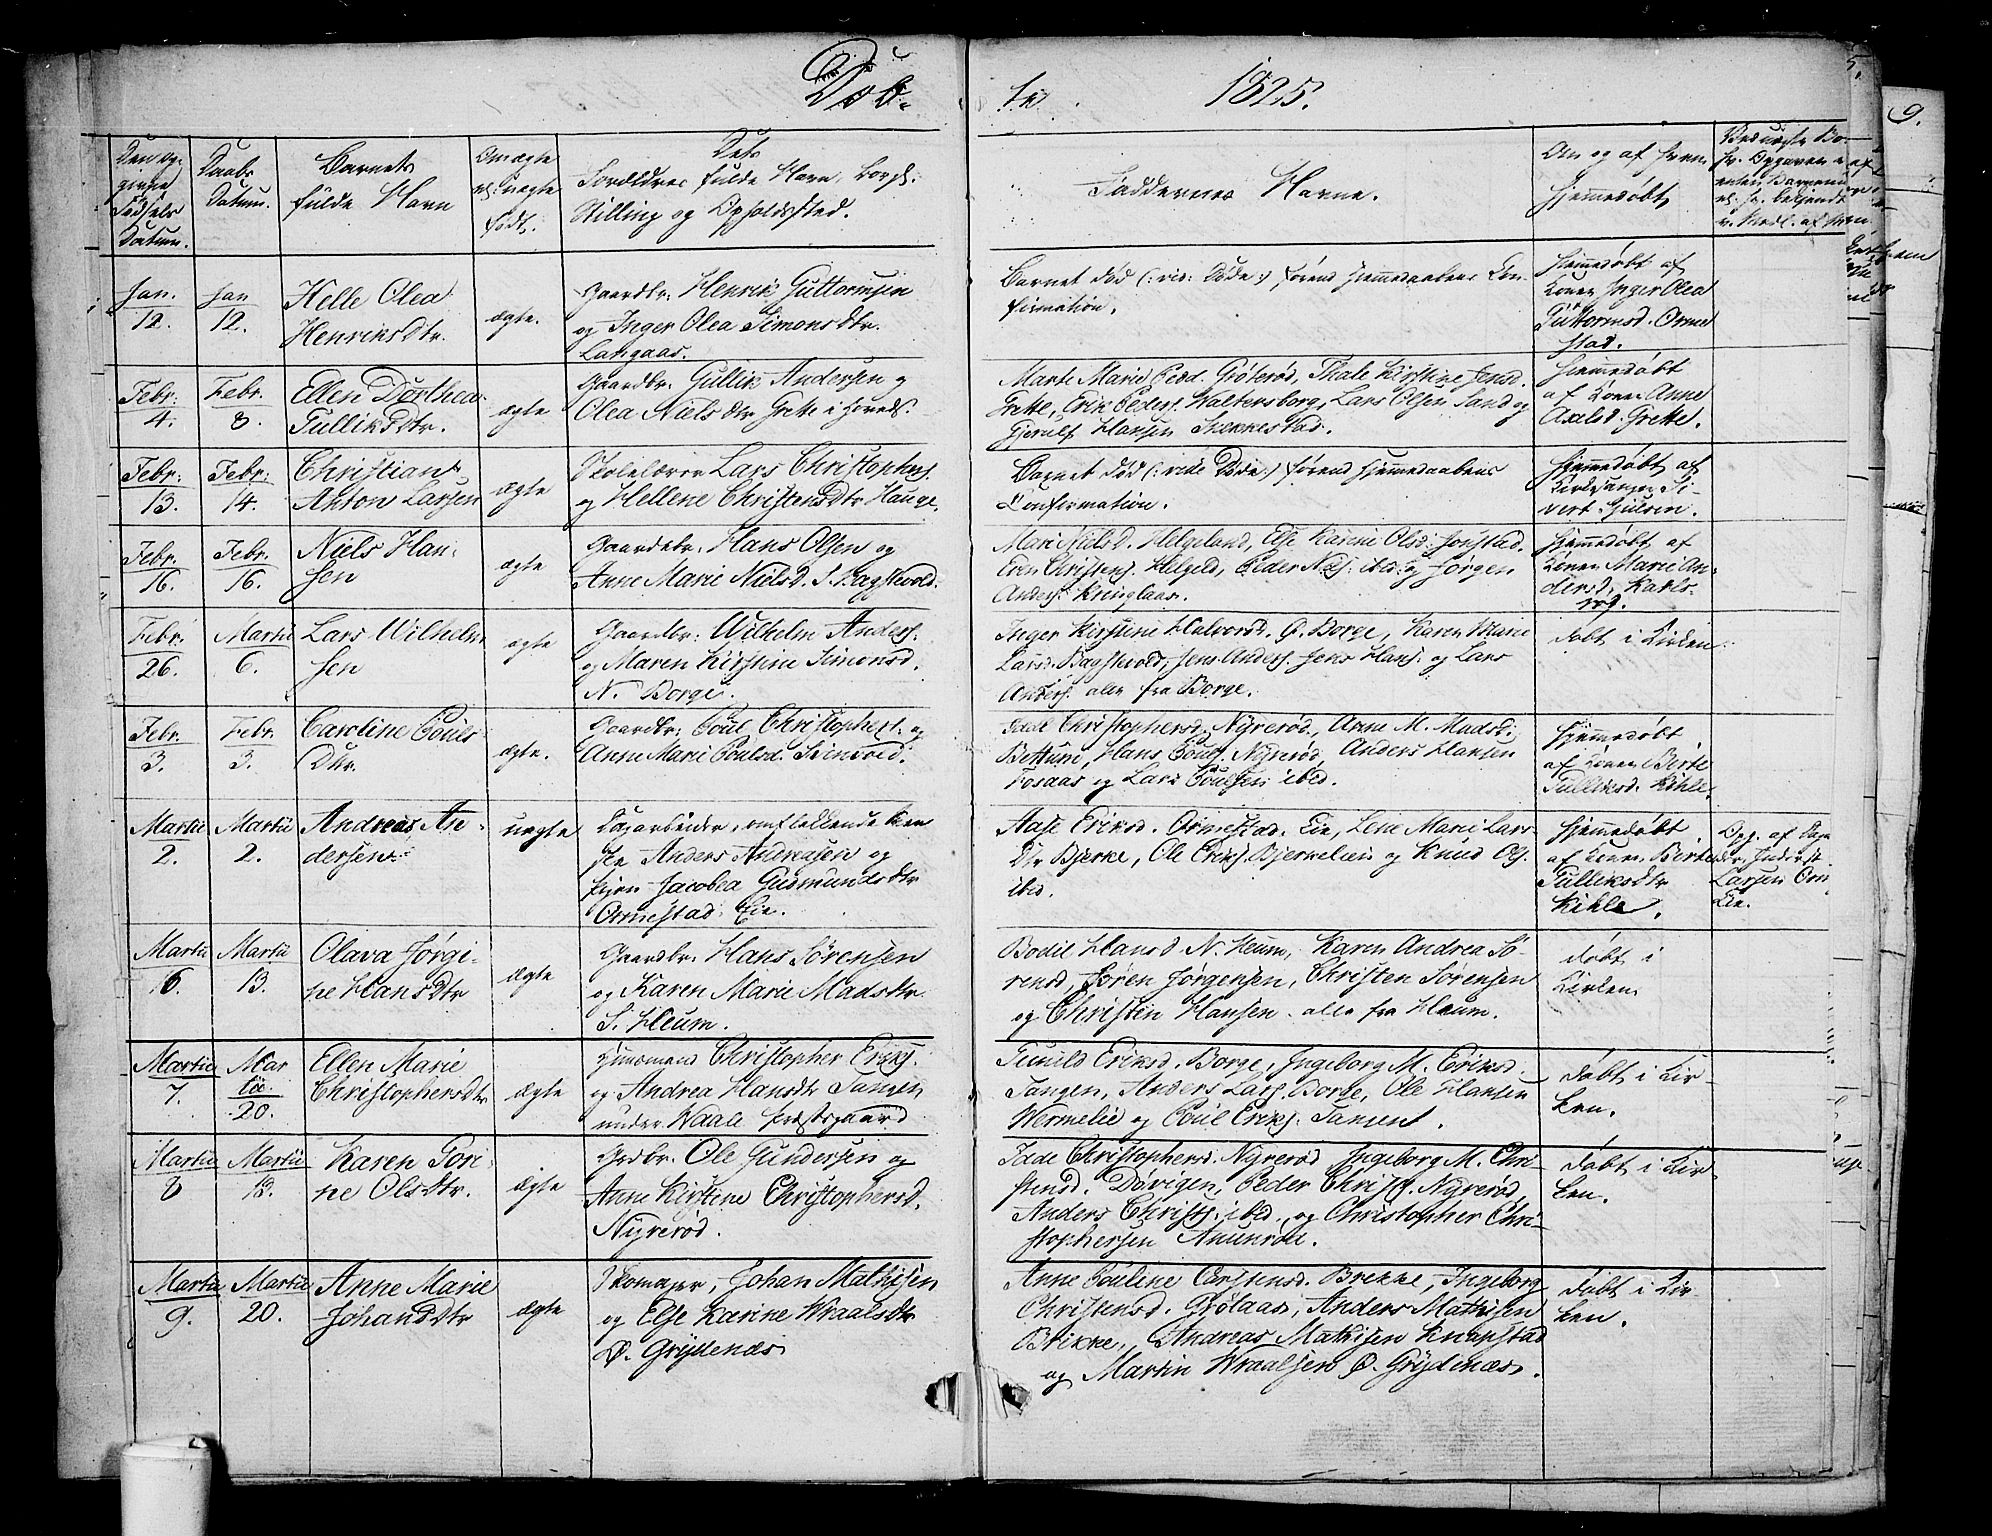 Døb-
te
1825.
9.
Den op-
givne
Fødsels
Datum.
Daabs
Datum.
Barnets
fulde Navn
Om ægte
el: uægte
født.
Dets
Forældres fulde Navn, Borgl:
Stilling og Opholdssted.
Faddernes Navne.
Om og af hvem
hjemmedøbt
Jan.
12.
Jan
12.
Helle Olea
HenriksDtr.
ægte.
Gaardbr: Henrik Guttormsen
og Inger Olea SimonsDtr.
Langaas.
Barnet død (: vid: Døde:) førend Hjemmedaabens Con-
firmation.
Hjemmedøbt af
Konen Inger Olea
Guttormsd. Orme
stad.
Febr.
4.
Febr.
8.
Ellen Dorthea
GulliksDtr.
ægte
Gaardbr: Gullik Andersen og
Olea NielsDtr Grette i Hoveds.
Marte Marie Pedd. Grøterød, Thale Kirstine Jensd.
Grette, Erik Peders. Waltersborg, Lars Olsen Sand og
Gjerulf Hansen Stekkestad.
Hjemmedøbt
af Konen Anne
Axelsd. Grette.
Febr:
13.
Febr:
14.
Christian
Anton Larsen
ægte
Skolelærer Lars Christophers.
og Hellene ChristensDtr Hauge.
Barnet død (: vide Døde:) førend Hjemmedaabens
Confirmation.
Hjemmedøbt af
Kirkesanger Si-
vert Gulsen.
Febr.
16.
Febr.
16.
Niels Han-
sen
ægte
Gaardbr: Hans Olsen og
Anne Marie Nielsd. S. Bagstevold.
Mari Nielsd. Helgeland, Else Karine Olsd: Jonstad.
Even Christens. Helgeld, Peder Niels: ibid: og Jørgen
Anders: Kringlaas.
Hjemmedøbt af
Konen Marie An-
dersd. Karls-
rød.
Febr.
26.
Martii
6.
Lars Wilhelm
sen
ægte
Gaardbr: Wilhelm Anders.
og Maren Kirstine Simonsd.
N. Borge.
Inger Kirstine Halvorsd. Ø. Borge, Karen Marie
Larsd. Bagstevold, Jens Anders. Jens Hans. og Lars
Anders. alle fra Borge.
døbt i Kirken
Febr.
3.
Febr.
3.
Caroline Pouls
Dtr.
ægte.
Gaardbr: Poul Christophers. og
Anne Marie Poulsd. Svinevol.
Idde Christophersd. Nyrerød, Anne M. Madsd.
Bettum, Hans Pouls. Nyrerød, Anders Hansen
Fosaas og Lars Poulsen ibid.
Hjemmedøbt
af Konen Berte
Gulliksd. Kihle.
Martii
2.
Martii
2.
Andreas An-
dersen
uægte
Dagarbeider, omflakkende
Anders Andreasen og
Pigen Jacobea GudmundsDtr
Ormestad Eie.
Aase Eriksd. Ormestad Eie, Lene Marie Lars
Dtr Bjerke, Ole Eriks. Bjerkelien og Knud Ols.
ibid.
Hjemmedøbt
af Konen Birte
GulliksDtr
Kihle.
Opg. af
Larsen
Eie.
Martii
6.
Martii
13.
Olava Jørgi-
ne HansDtr
ægte
Gaardbr. Hans Sørensen
og Karen Marie MadsDtr
S. Heum.
Bodil Hansd N. Heum, Karen Andrea Sø-
rensd, Søren Jørgensen, Christen Sørensen
og Christen Hansen alle fra Heum.
døbt i
Kirken
Martii
7.
Mar
tii
20.
Ellen Marie
ChristophersDtr
ægte
Huusmand Christopher Eriks.
og Andrea HansDtr Tangen
under Waale Præstegaard
Gunild Eriksd. Borge, Ingeborg M. Eriksd.
Tangen, Anders Lars. Borge, Ole Hansen
Wermelie og Poul Eriks. Tangen.
døbt i Kir-
ken.
Martii
8
Martii
18.
Karen Tori-
ne OlsDtr.
ægte
Grdbr. Ole Gundersen og
Anne Kirstine Christophersd.
Nyrerød.
Idde Christophersd. Nyrerød Ingeborg M. Chri-
stensd. Døvigen, Peder Christ. Nyrerød,
Anders Christs. ibid. og Christopher Chri-
stophersen Anunrød.
døbt i Kir
ken.
Martii
9.
Martii
20.
Anne Marie
JohansDtr
ægte
Skomager Johan Mathisen
og Else Karine WraalsDtr
Ø. Grydenæs
Anne Pouline Carstensd. Brekke, Ingeborg
Christensd. Grølaas, Anders Mathisen
Brekke, Andreas Mathisen Knapstad
og Martin Wraalsen Ø. Grydenæs.
døbt i Kir-
ken.